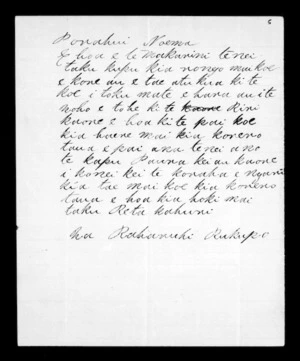 6
Ponahui Noema
E hoa e te makarini tenei
taku kupu kia rongo mai koe
e kore au e tae atu kua ki te
koe i toku mate e hara au i te
noho e tohe ki te kaone kini
kaone e hoa ki te pai koe
kia haere mai kia korero
taua e pai ana tenei ano
te kapu Pauna kei au kaone
i konei kei te
kia tae mai koe kia korero
taua e hoa kia hoki mai
taku Reta kahuni
na Rukupo